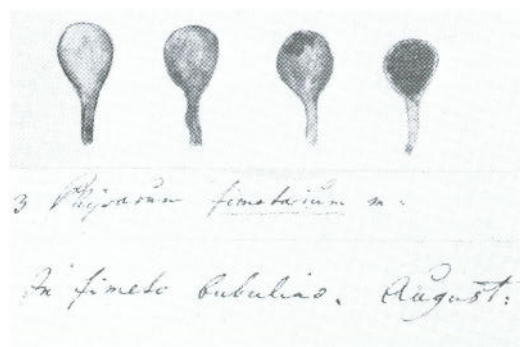 3 Physarum fimetarium m.
In fimeto bubulino. August: